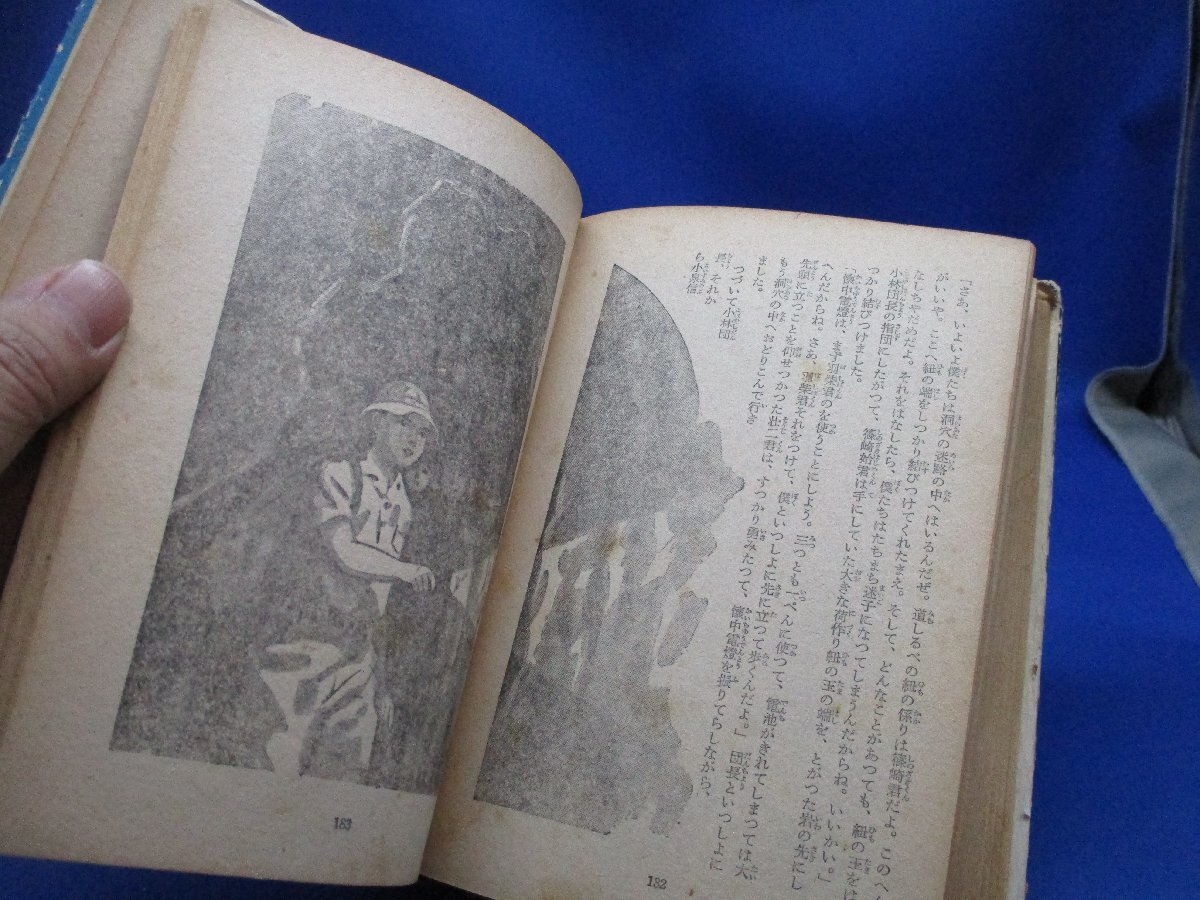 「さあ、いよいよ僕たちは洞穴の迷路の中へはいるんだぜ。道しるべの紐の係りは篠崎君だよ。このへん
がいいや。ここへ紐の端をしつかり結びつけてくれたまえ。そして、どんなことがあつても、紐の玉をは
なしちやだめだよ。それをはなしたら、僕たちはたちまち迷子になつてしまうんだからね。いいかい。」
小林団長の指図にしたがつて、篠崎始君は手にしていた大きな荷作り紐の玉の端を、とがつた岩の先にし
つかり結びつけました。
「懐中電燈は、まず羽柴君のを使うことにしよう。三つとも一ぺんに使つて、電池がきれてしまつては大
へんだからね。さあ、羽柴君それをつけて、僕といつしよに先に立つて歩くんだよ。」団長といつしよに
先頭に立つことを仰せつかつた壮二君は、すつかり勇みたつて、懐中電燈を振りてらしながら、
もう洞穴の中へおどりこんで行き
ました。
つづいて小林団
長、それか
ら小泉信
132
183